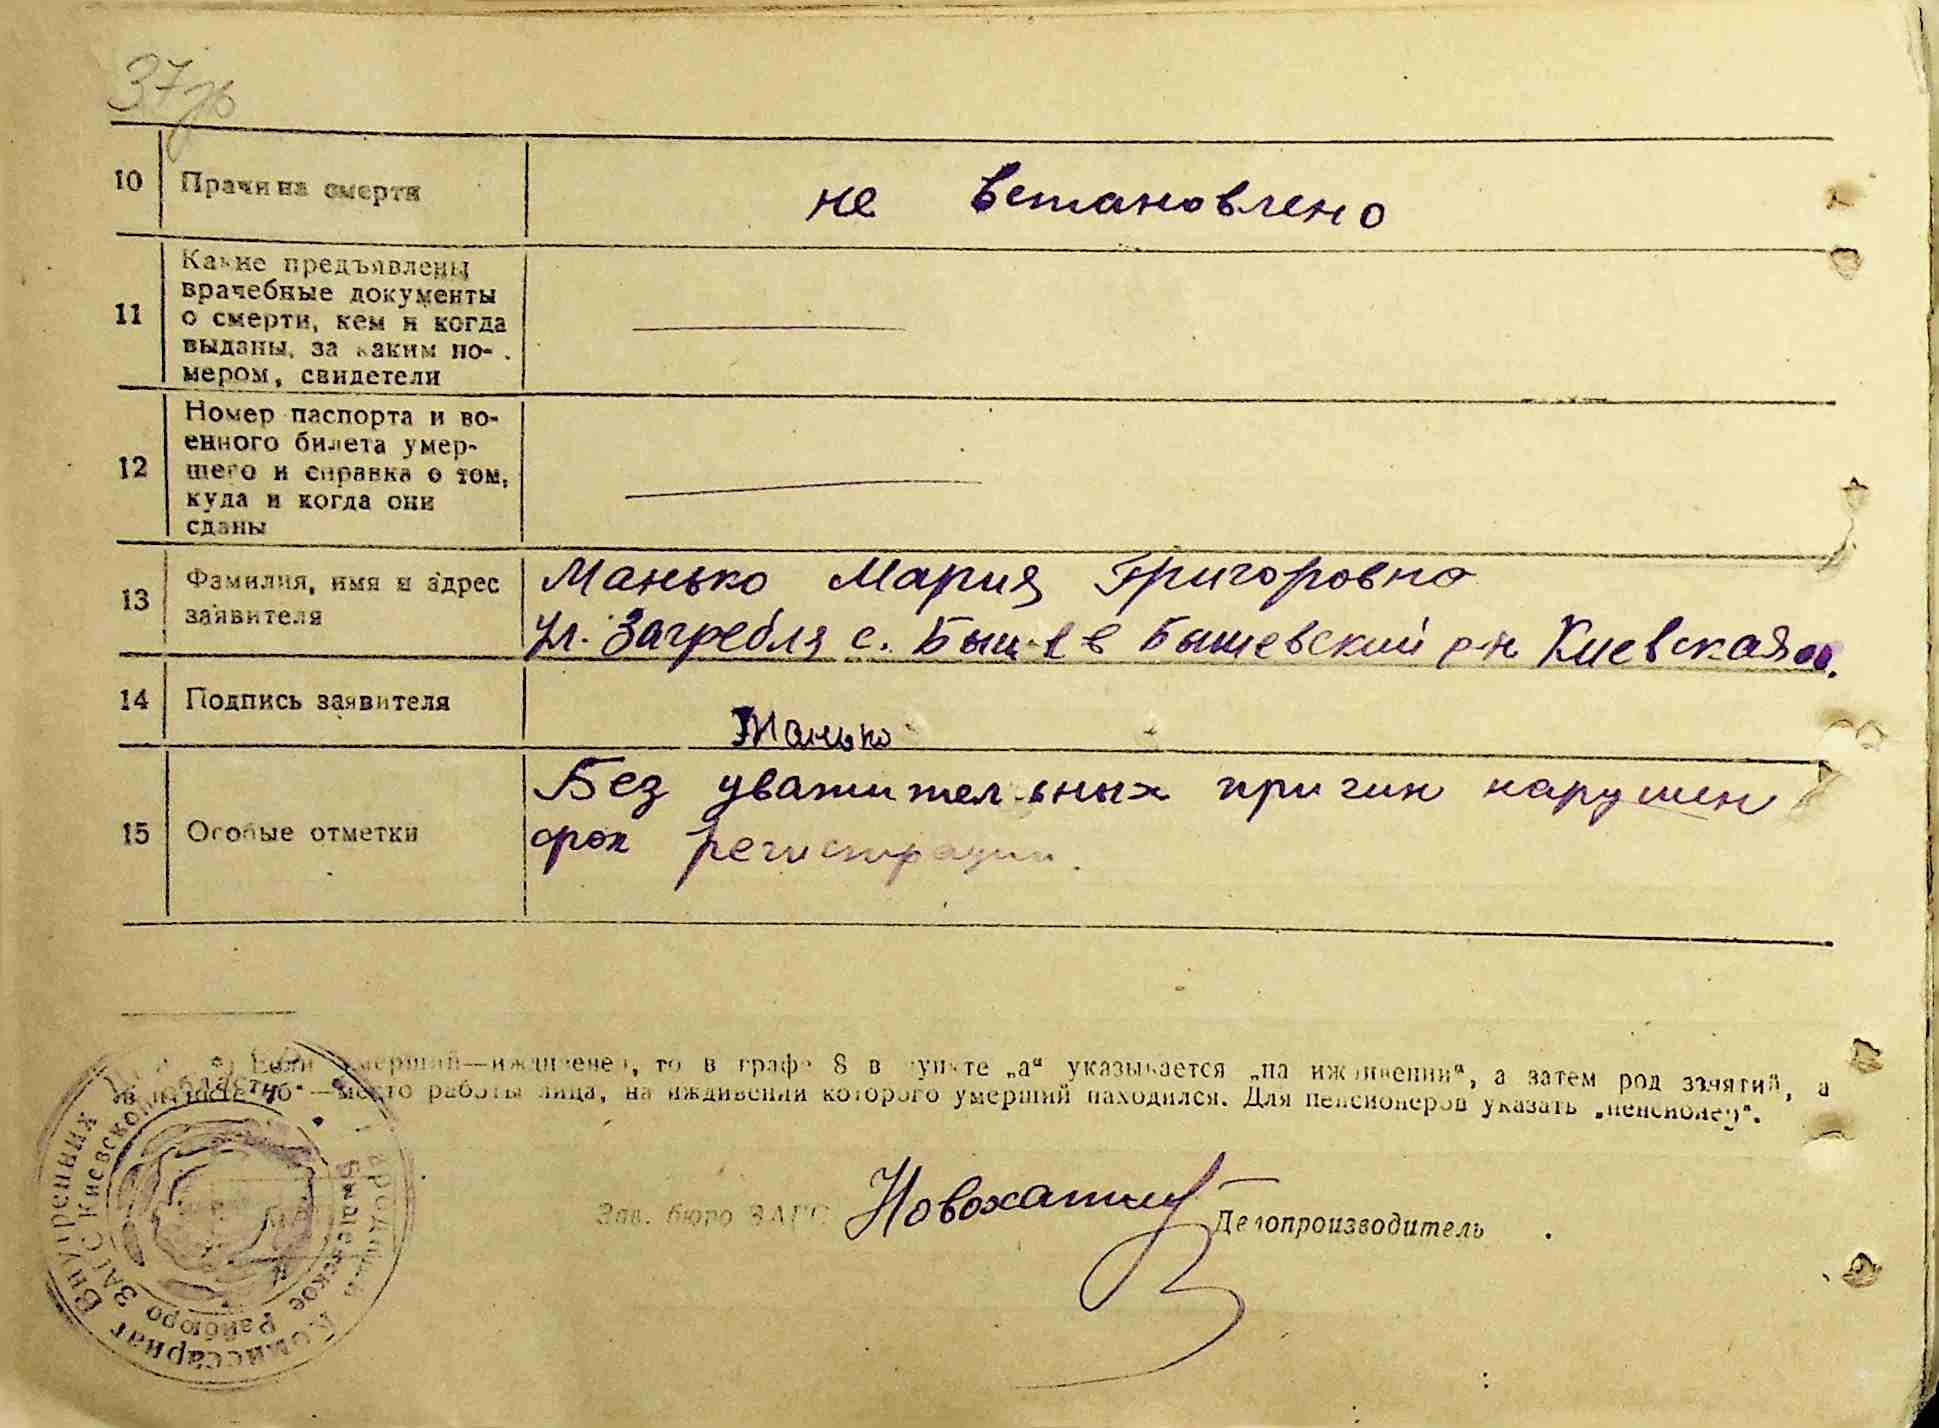 37
10 Причина смерти
не встановлено
11 Какие предъявлены
врачебные документы
о смерти, кем и когда
выданы, за каким но-
мером, свидетели
12 Номер паспорта и во-
енного билета умер-
шего и справка о том,
куда и когда они
сданы
13 Фамилия, имя и адрес
заявителя
Манько Мария Григоровна
ул. Загребля с. Бышев Бышевский р-н Киевская
14 Подпись заявителя
Манько
15 Особые отметки
Без уважительных причин нарушен
срок регистрации.
Если умерший—иждивенец, то в графе 8 в пункте „а“ указывается „на иждивении“, а затем род занятий, а
в пункте „б“—место работы лица, на иждивении которого умерший находился. Для пенсионеров указать „пенсионер“.
Зав. бюро ЗАГС
Делопроизводитель
Народный Комиссариат Внутренних
Бышевское Райбюро ЗАГС Киевской области